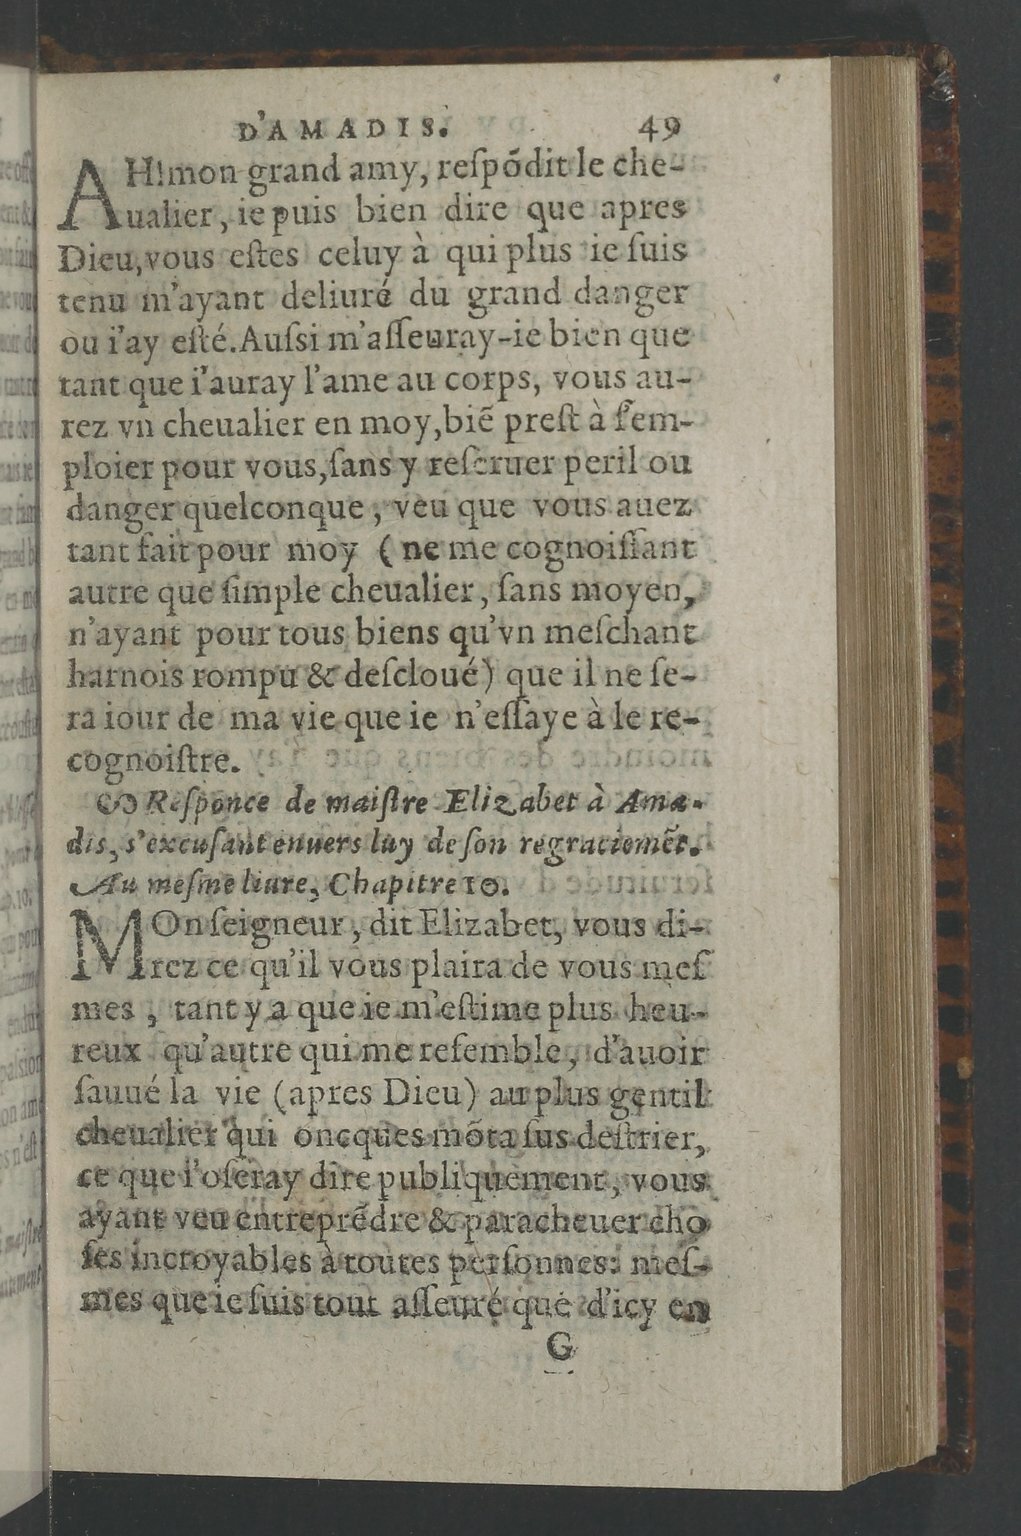 D'AMADIS. 49
AH! mon grand amy, reſpõdit le che-
ualier, ie puis bien dire que apres
Dieu, vous eſtes celuy à qui plus ie ſuis
tenu m'ayant deliuré du grand danger
ou i'ay eſté. Auſsi m'aſſeuray-ie bien que
tant que i'auray l'ame au corps, vous au-
rez vn cheualier en moy, biẽ preſt à ſ'em-
ploier pour vous, ſans y reſeruer peril ou
danger quelconque, veu que vous auez
tant fait pour moy (ne me cognoiſſant
autre que ſimple cheualier, ſans moyen,
n'ayant pour tous biens qu'vn meſchant
harnois rompu & deſcloué) que il ne ſe-
ra iour de ma vie que ie n'eſſaye à le re-
cognoiſtre.
Reſponce de maiſtre Elizabet à Ama-
dis, s'excuſant enuers luy de ſon regraciemẽt.
Au meſme liure, Chapitre 10.
MOnſeigneur, dit Elizabet, vous di-
rez ce qu'il vous plaira de vous meſ
mes, tant y a que ie m'eſtime plus heu-
reux qu'autre qui me reſemble, d'auoir
ſauué la vie (apres Dieu) au plus gentil
cheualier qui oncques mõta ſus deſtrier,
ce que i'oſeray dire publiquement, vous
ayant veu entreprẽdre & paracheuer cho
ſes incroyables à toutes perſonnes: meſ-
mes que ie ſuis tout aſſeuré que d'icy en
G